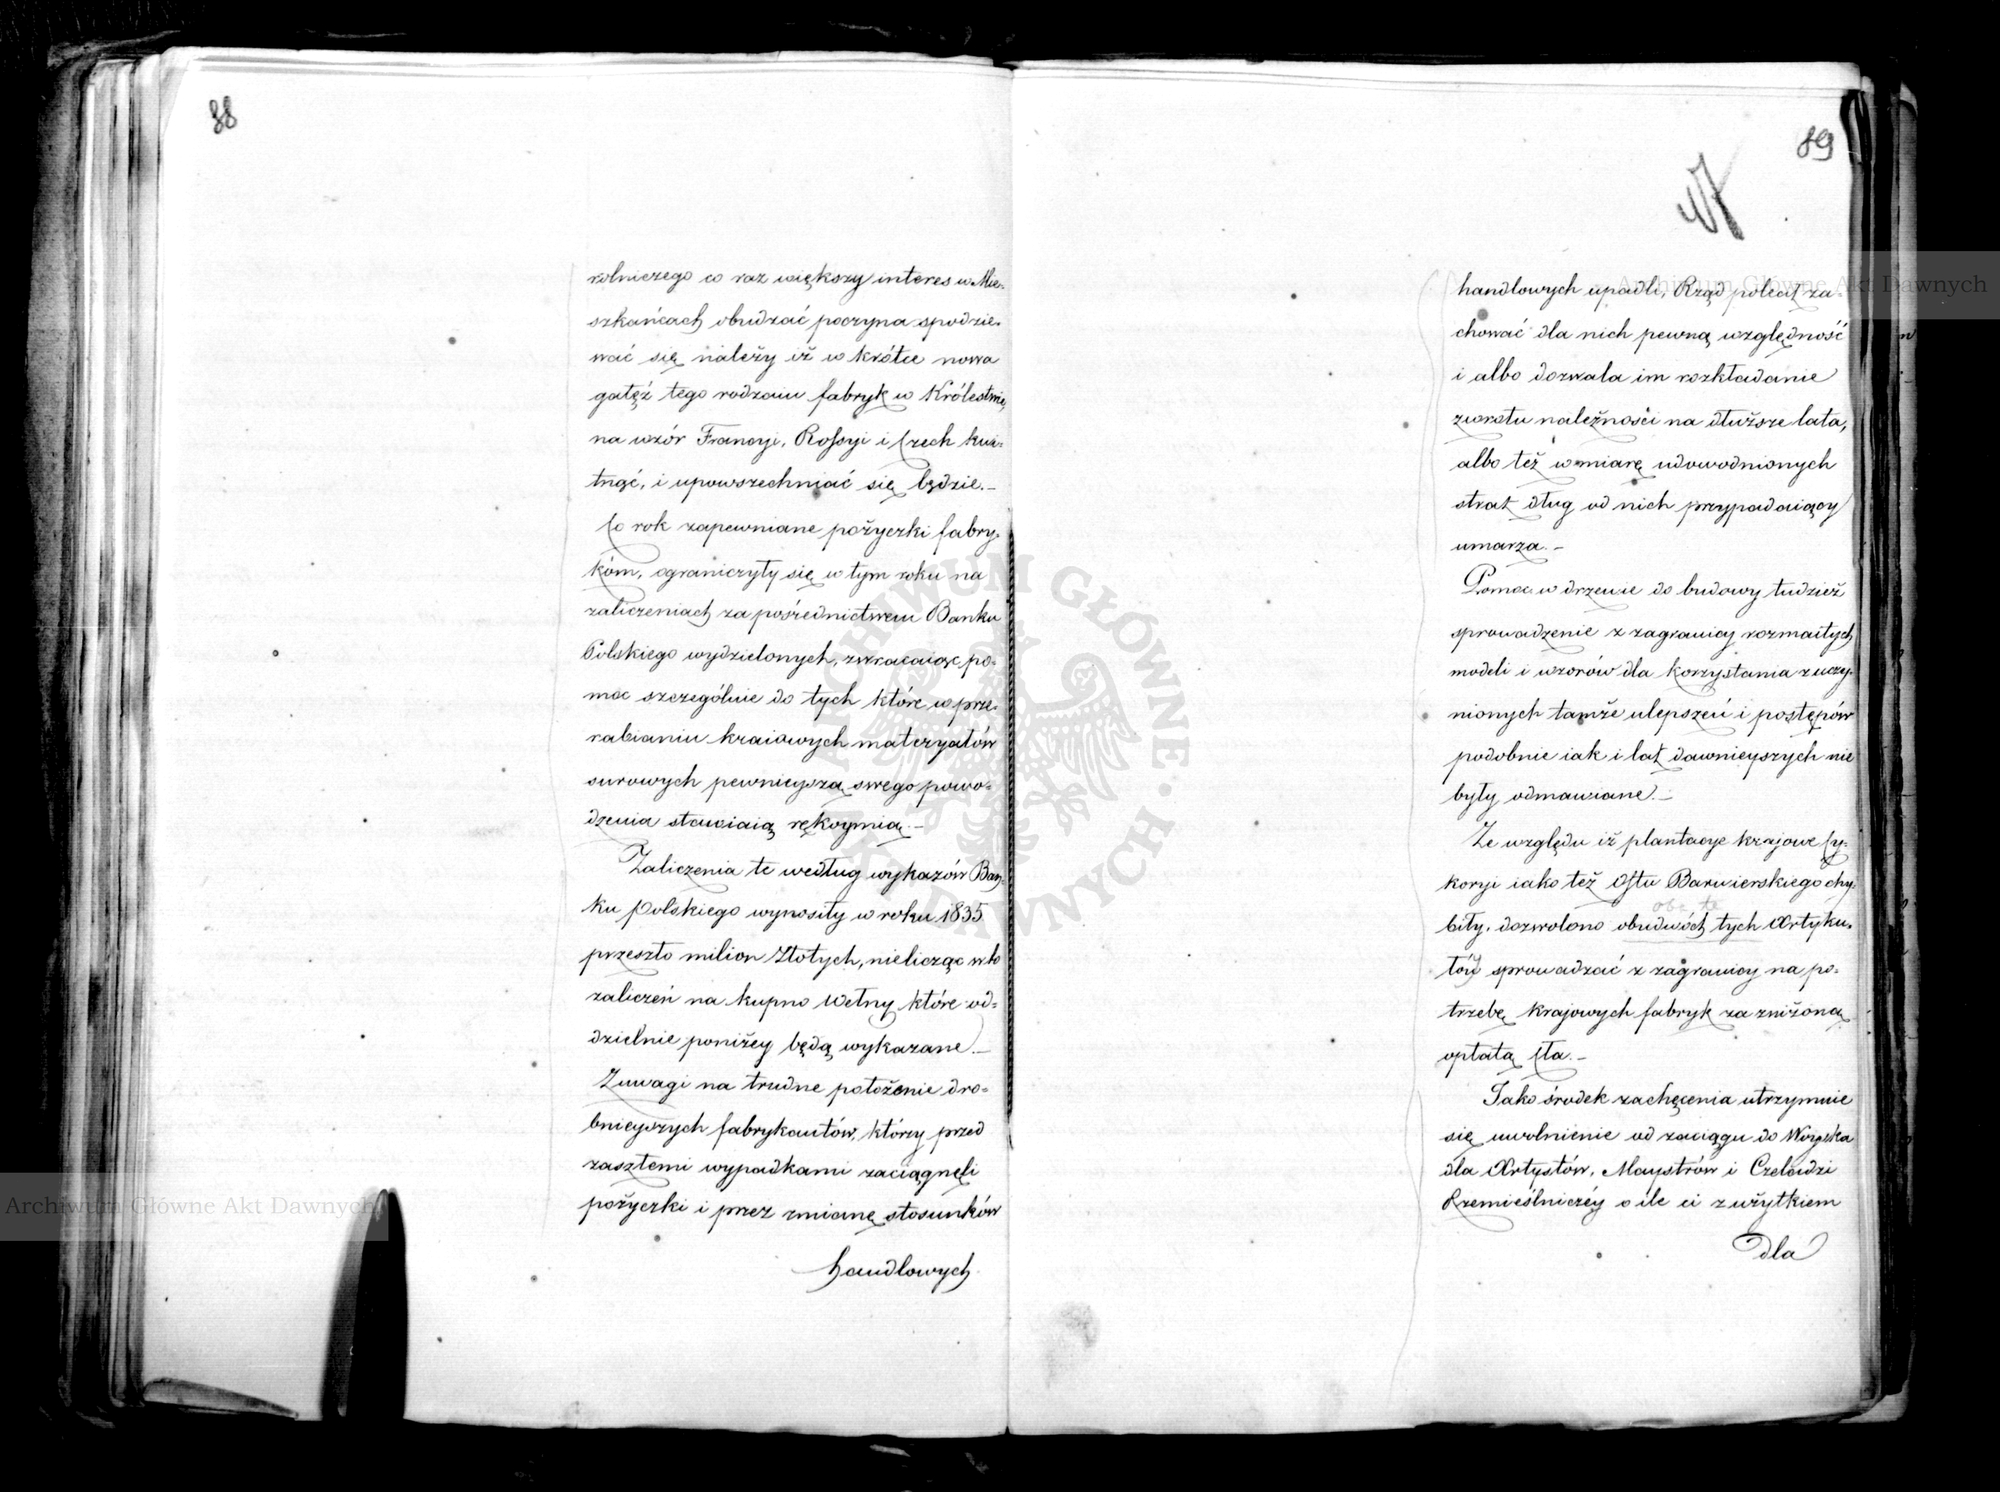 88
rolniczego co raz większy interes w Mie-
szkańcach obudzać poczyna spodzie-
wać się należy iż w krótce nowa
gałęź tego rodzaiu fabryk w Królestwie,
na wzór Francyi, Rossyi i Czech kwi-
tnąć, i upowszechniać się będzie.—
Co rok zapewniane pożyczki fabry-
kóm, ograniczyły się w tym roku na
zaliczeniach za pośrednictwem Banku
Polskiego wydzielonych, zwracaiąc po-
moc szczególnie do tych które w prze-
rabianiu kraiowych materyałów
surowych pewnieyszą swego powo-
dzenia stawiaią rękoymią.—
Zaliczenia te według wykazów Ban-
ku Polskiego wynosiły w roku 1835
przeszło milion Złotych, nielicząc w to
zaliczeń na kupno Wełny które od-
dzielnie poniżey będą wykazane.—
Z uwagi na trudne położenie dro-
bnieyszych fabrykantów, którzy przed
zaszłemi wypadkami zaciągnęli
pożyczki i przez zmianę stosunków
handlowych
89
handlowych upadli, Rząd polecał za-
chować dla nich pewną względność
i albo dozwala im rozkładanie
zwrotu należności na dłuższe lata,
albo też w miarę udowodnionych
strat dług od nich przypadaiący
umarza.—
Pomoc w drzewie do budowy tudzież
sprowadzenie z zagranicy rozmaitych
modeli i wzorów dla korzystania z uczy-
nionych tamże ulepszeń i postępów
podobnie iak i lat dawnieyszych nie
były odmawiane.—
Ze względu iż plantacye krajowe Cy-
koryi iako też Ostu Barwierskiego chy-
biły, dozwolono obudwóch tych Artyku-
łów sprowadzać z zagranicy na po-
trzebę krajowych fabryk za zniżoną
opłatą Cła.—
Jako środek zachęcenia utrzymuie
się uwolnienie od zaciągu do Woyska
dla Artystów, Maystrów i Czeladzi
Rzemieślniczéy o ile ci z użytkiem
dla
Archiwum Główne Akt Dawnych
Archiwum Główne Akt Dawnych
ARCHIWUM GŁÓWNE AKT DAWNYCH